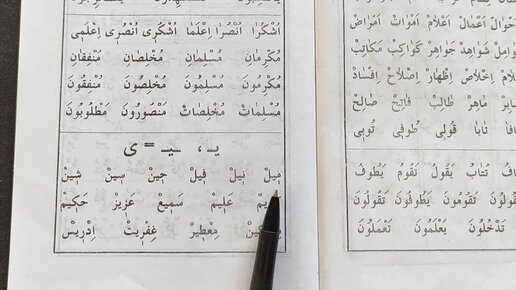 اُشْكُرَا اُنْصُرَا اِعْلَمَا اُشْكُرِى اُنْصُرِى اِعْلَمِى
مُكْرَمَانِ مُسْلِمَانِ مُخْلِصَانِ مُنْفِقَانِ
مُكْرَمُونَ مُسْلِمُونَ مُخْلِصُونَ مُنْفِقُونَ
مُسْلِمَاتٌ مُخْلِصَاتٌ مَنْصُورُونَ مَطْلُوبُونَ
يـ، ـيـ = ى
مِيلْ نِيلْ فِيلْ جِينْ سِينْ شِينْ
عَلِيمْ سَمِيعْ عَزِيزْ حَكِيمْ
مِعْطِيرْ عِفْرِيتْ اِدْرِيسْ
اَحْوَالْ اَعْمَالْ اَعْلَامْ اَمْوَاتْ اَمْرَاضْ
شَوَاهِدْ جَوَاهِرْ كَوَاكِبْ مَكَاتِبْ
اِخْلَاصْ اِظْهَارْ اِصْلَاحْ اِفْسَادْ
مَاهِرْ طَالِبْ فَاتِحْ صَالِحْ
تَابَا قُولِى طُوفِى تُوبِى
تَابُ يَقُولُ تَقُومُ يَطُوفُ
تَقُومُونَ يَطُوفُونَ تَقُولُونَ
تَدْخُلُونَ يَعْلَمُونَ تَعْمَلُونَ